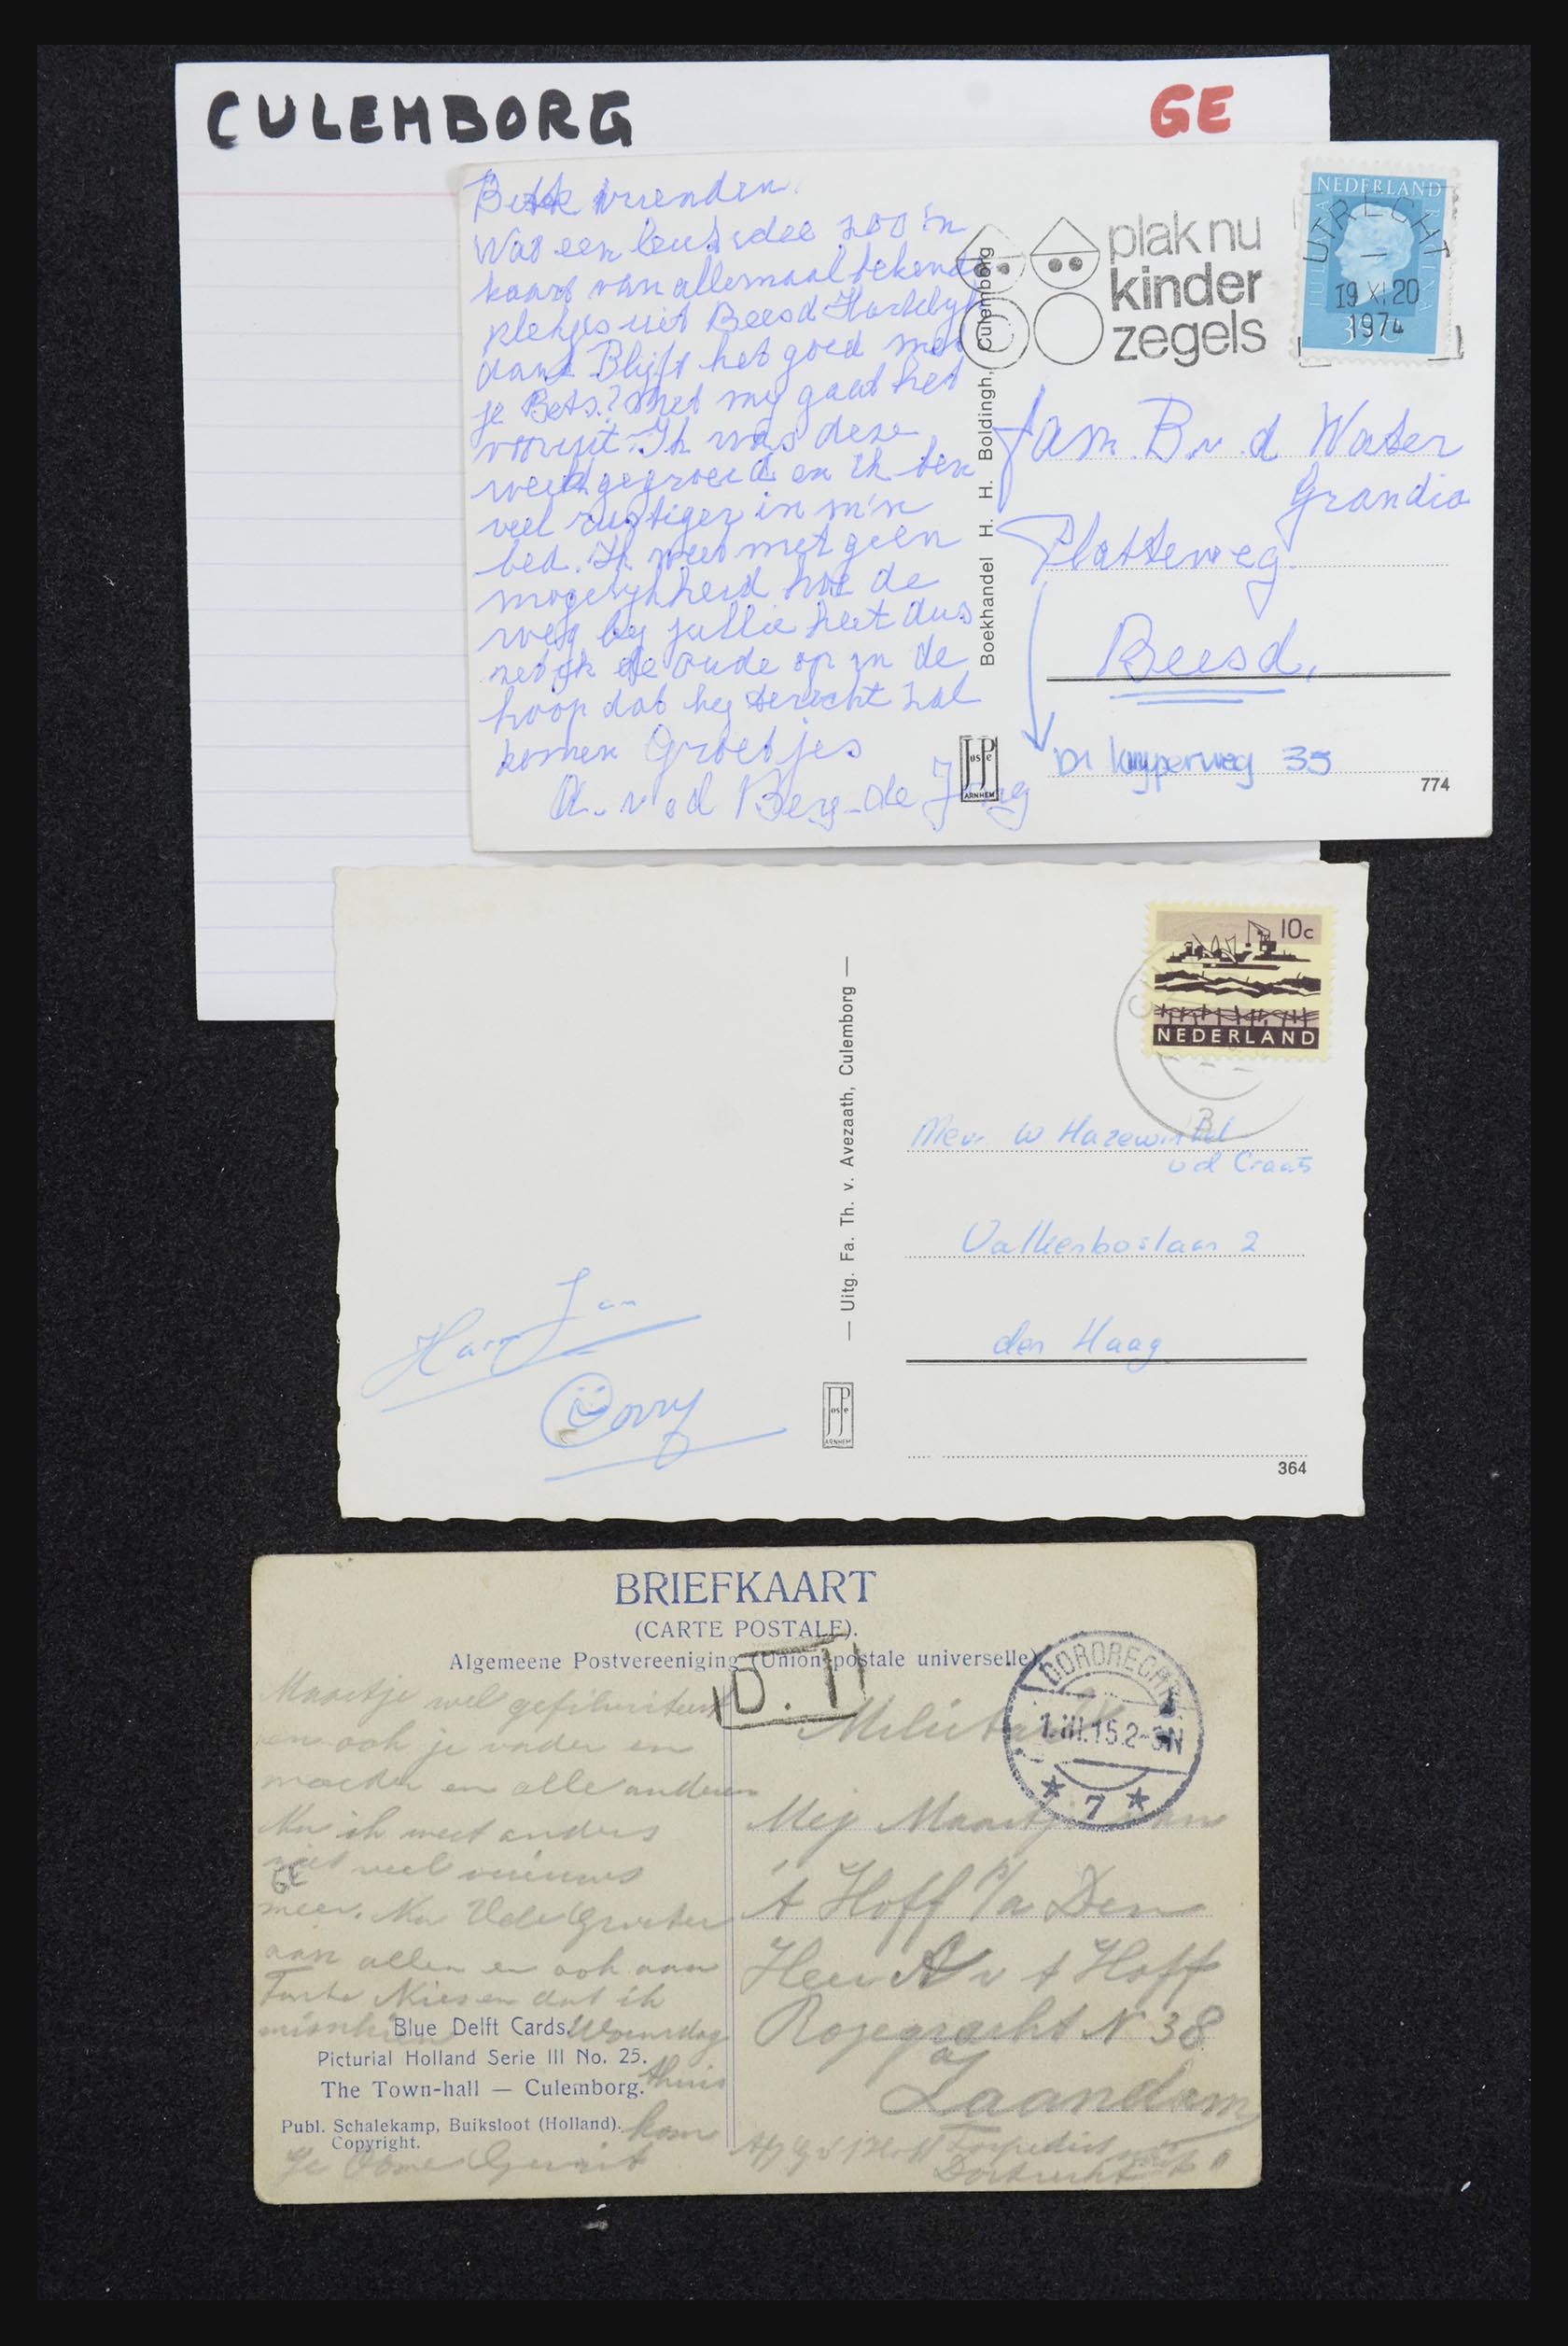 CULEMBORG
GE
Beste vrienden.
Wat een leuk idee zoo'n
kaart van allemaal bekende
plekjes uit Beesd Hartelijk
dank Blijft het goed met
je Bets? Met mij gaat het
vooruit. Ik was deze
week gegroeid en ik ben
veel rustiger in m'n
bed. Ik weet met geen
mogelijkheid hoe de
weg bij jullie heet dus
zet ik de oude op in de
hoop dat hij terecht zal
komen Groetjes
A. v d Berg-de Jong
Boekhandel H. H. Boldingh, Culemborg
plak nu
kinder
zegels
NEDERLAND
UTRECHT
19 XI 20
1974
35c
fam. B v. d Water
Grandia
Platteweg
Beesd,
Dr kuyperweg 35
JosPe
ARNHEM
774
10c
NEDERLAND
B
Uitg. Fa. Th. v. Avezaath, Culemborg
Mevr W Hazewinkel
v d Craats
Valkenboslaan 2
den Haag
Harm Jan
Corry
JosPe
ARNHEM
364
BRIEFKAART
(CARTE POSTALE).
Algemeene Postvereeniging (Union postale universelle).
D. II
DORDRECHT
1.III.15 2-3N
7
Maartje wel gefiliciteerd
en ook je vader en
moeder en alle anderen
Nu ik weet anders
niet veel nieuws
GE
meer. Nu Vele Groeten
aan allen en ook aan
Tante dat ik
misschien Woensdag
thuis
kom
Je Oome Gerrit
Blue Delft Cards.
Picturial Holland Serie III No. 25.
The Town-hall — Culemborg.
Publ. Schalekamp, Buiksloot (Holland).
Copyright.
Militair
Mej Maartje van
't Hoff p/a Den
Heer A v t Hoff
Rozegracht N 38
Zaandam
Afz G v t Hoff Torpedist
Dordrecht